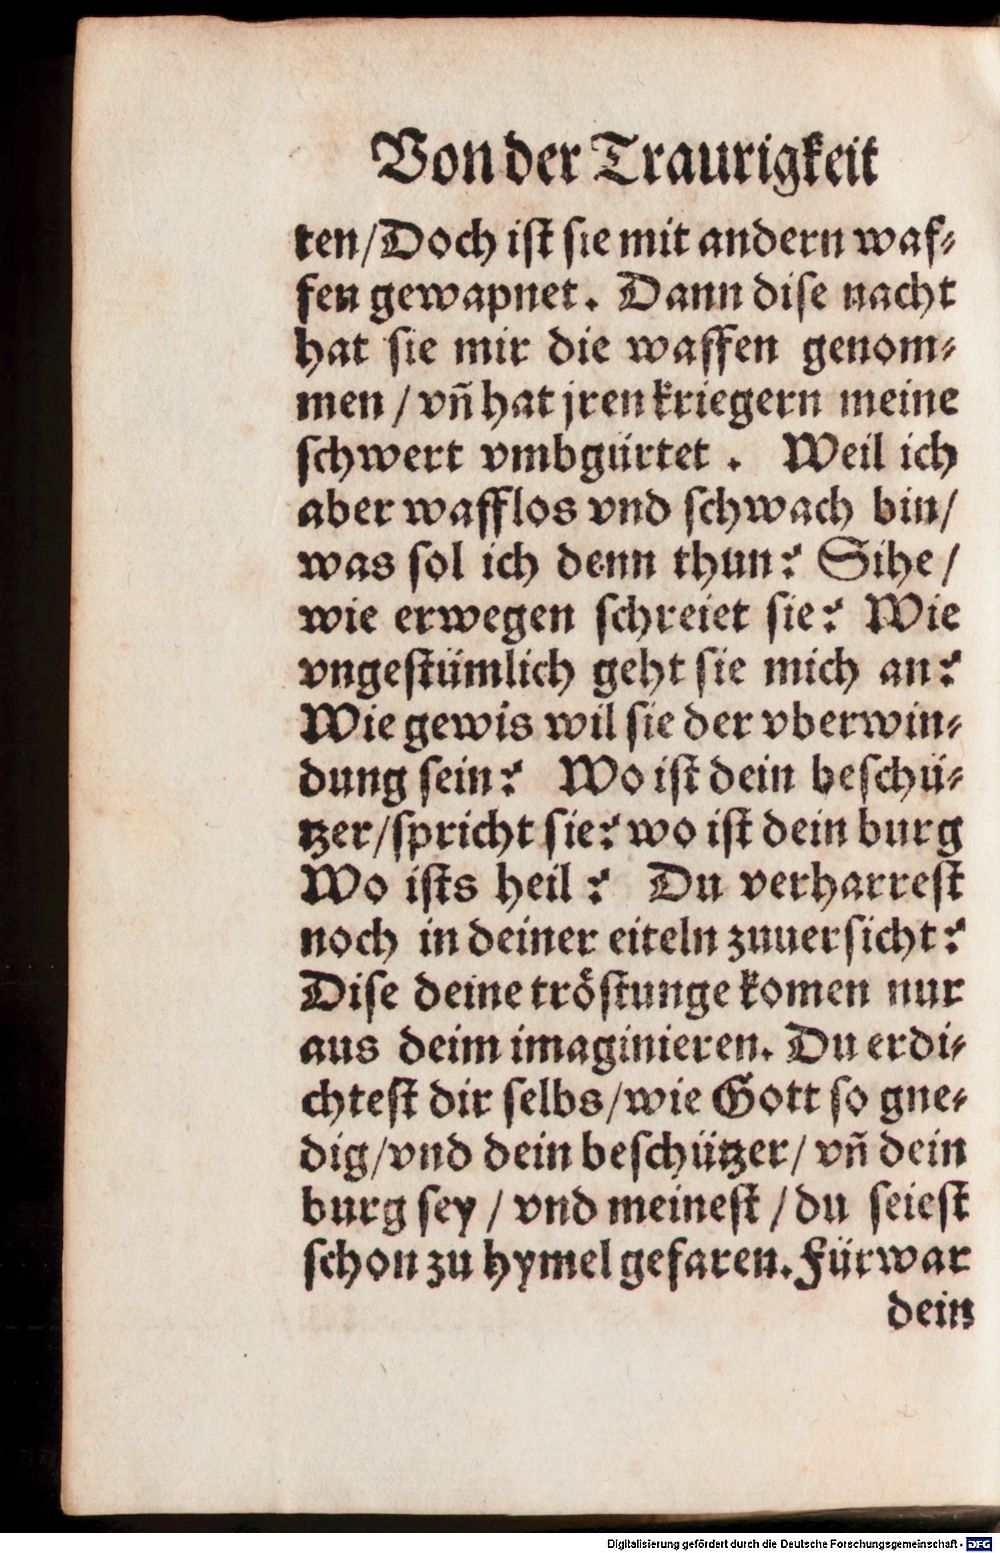 Von der Traurigkeit
ten/Doch iſt ſie mit andern waf⸗
fen gewapnet. Dann diſe nacht
hat ſie mir die waffen genom⸗
men / vñ hat jren kriegern meine
ſchwert vmbgürtet. Weil ich
aber wafflos vnd ſchwach bin/
was ſol ich denn thun? Sihe/
wie erwegen ſchreiet ſie? Wie
vngeſtümlich geht ſie mich an?
Wie gewis wil ſie der vberwin⸗
dung ſein? Wo iſt dein beſchü⸗
tzer/ſpricht ſie? wo iſt dein burg
Wo iſts heil? Du verharreſt
noch in deiner eiteln zuuerſicht?
Diſe deine tröſtunge komen nur
aus deim imaginieren. Du erdi⸗
chteſt dir ſelbs/wie Gott ſo gne⸗
dig/vnd dein beſchützer/ vñ dein
burg ſey / vnd meineſt / du ſeieſt
ſchon zu hymel gefaren. Fürwar
dein
Digitalisierung gefördert durch die Deutsche Forschungsgemeinschaft - DFG